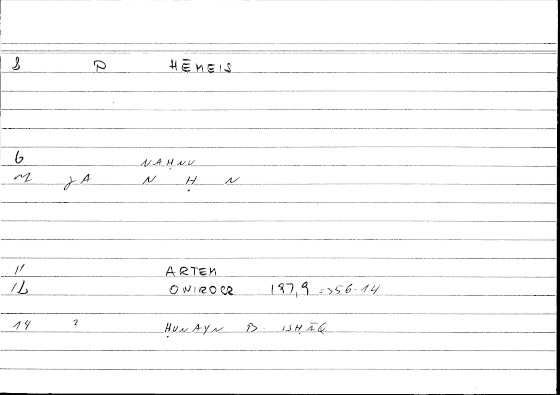 8 P HĒMEIS
6 NAḤNU
M JA N Ḥ N
11 ARTEM
12 ONIROCR 197,9 =356.14
14 ? ḤUNAYN B. ISḤĀQ